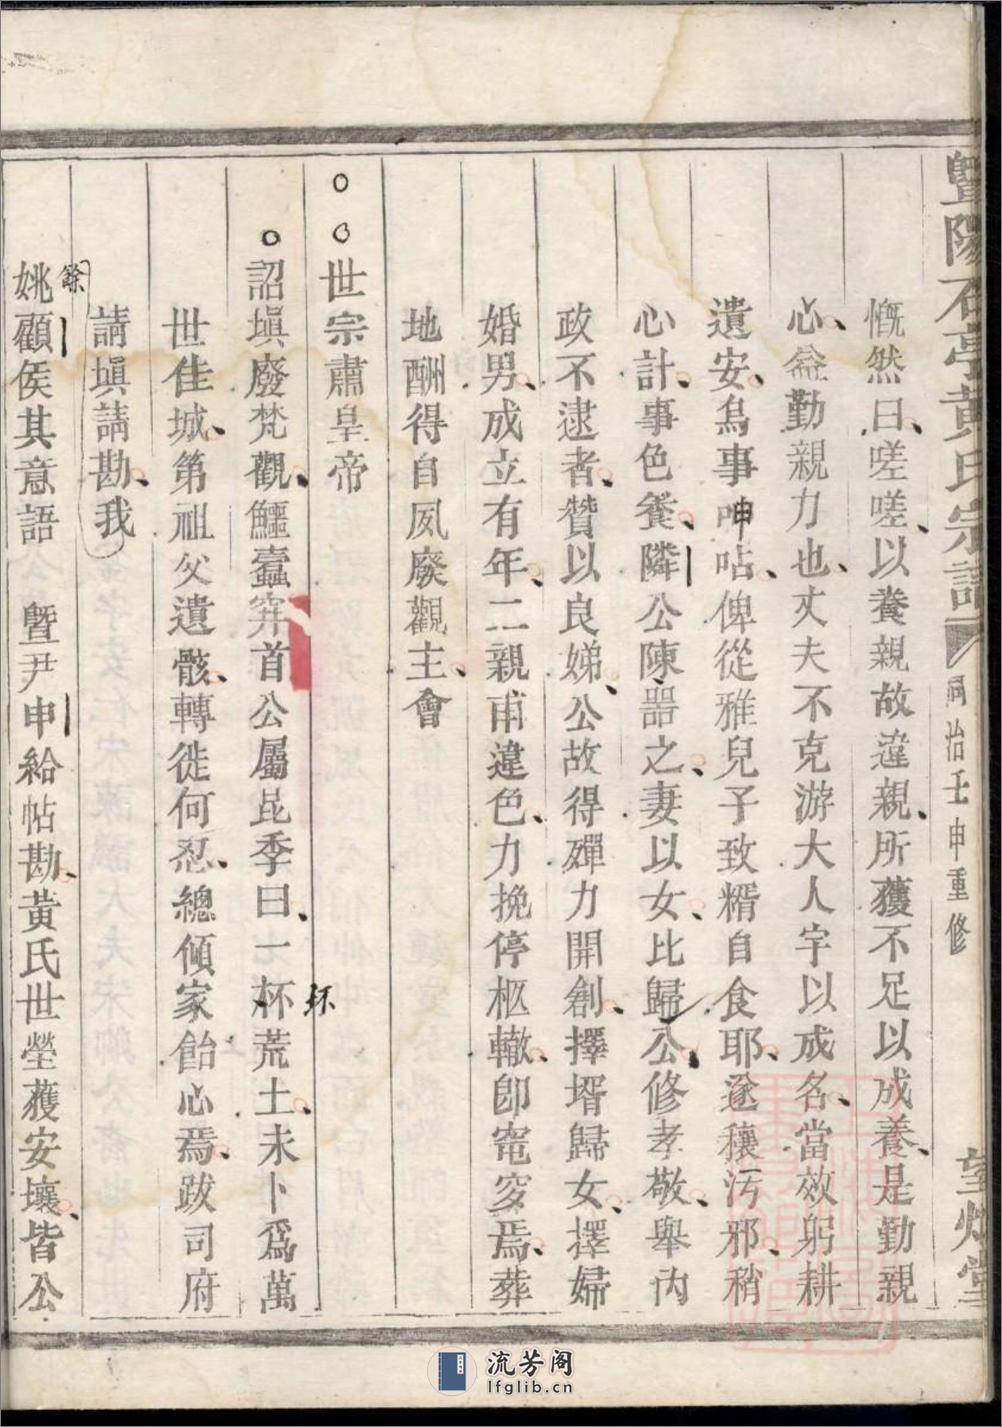 暨陽石亭黃氏宗譜 同治壬申重修 望烟堂
慨然曰嗟嗟以養親故違親所獲不足以成養是勤親
心益勤親力也丈夫不克游大人宇以成名當效躬耕
遺安烏事呻呫俾從雅兒子致糈自食耶遂穰污邪稍
心計事色養隣公陳噐之妻以女比歸公修孝敬舉內
政不逮者贊以良娣公故得殫力開創擇壻歸女擇婦
婚男成立有年二親甫違色力挽停柩轍卽窀穸焉葬
地酬得自夙廢觀主會
世宗肅皇帝
詔塡廢梵觀鱷蠹穽首公屬昆季曰一杯荒土未卜爲萬
坏
世佳城第祖父遺骸轉徙何忍總傾家飴心焉跋司府
請塡請勘我
餘
姚顧侯其意語 暨尹申給帖勘黃氏世塋蒦安壤皆公
流芳阁
lfglib.cn